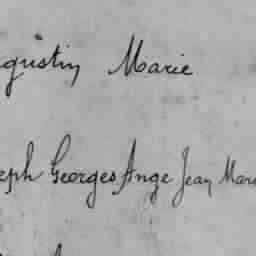 gustin Marie
eph Georges Ange Jean Mari